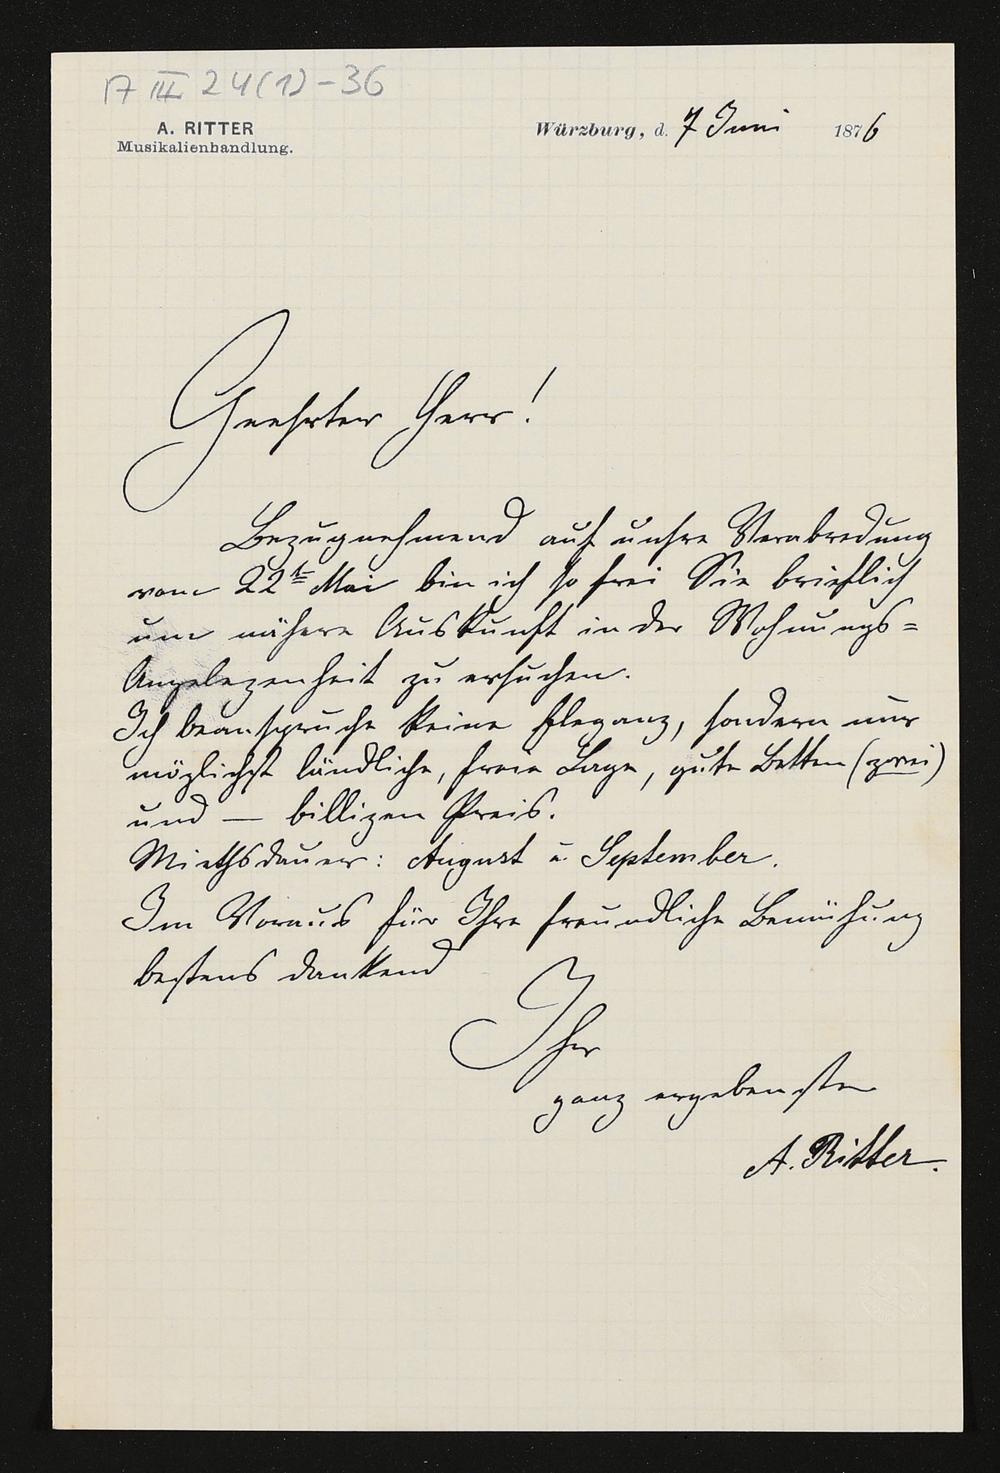 A III 24(1)-36
A. RITTER
Musikalienhandlung.
Würzburg, d. 7 Juni 1876
Geehrter Herr!
Bezugnehmend auf unsre Verabredung
vom 22te Mai bin ich so frei Sie brieflich
um nähere Auskunft in der Wohnungs=
Angelegenheit zu ersuchen.
Ich beanspruche keine Eleganz, sondern nur
möglichst ländliche, freie Lage, gute Betten (zwei)
und — billigen Preis.
Miethsdauer: August u. September.
Im Voraus für Ihre freundliche Bemühung
bestens dankend
Ihr
ganz ergebenster
A. Ritter.